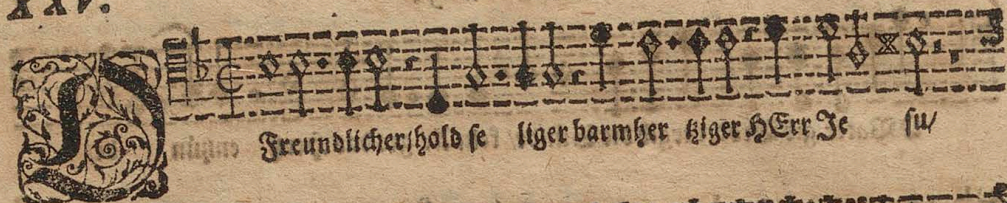 XXV.
O Freundlicher/hold se liger barmher tziger HErr Je su/